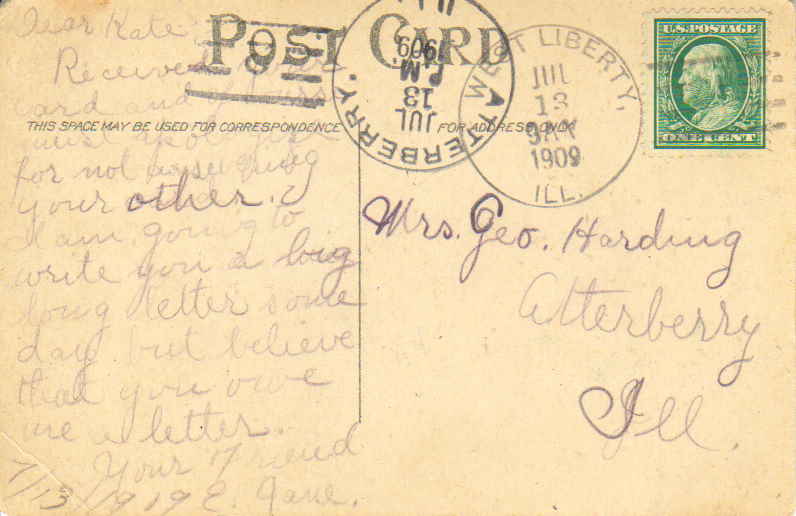 POST CARD
THIS SPACE MAY BE USED FOR CORRESPONDENCE
FOR ADDRESS ONLY
Dear Kate
Received your
card and
must
for not
your other.
I am going to
write you a big
long letter some
day but believe
that you owe
me a letter.
Your Friend
7/13/1919 E. Jane.
ATTERBERRY.
JUL
13
P.M.
1909
ILL.
WEST LIBERTY,
JUL
13
9AM
1909
ILL.
U.S. POSTAGE
ONE CENT
Mrs. Geo. Harding
Atterberry
Ill.